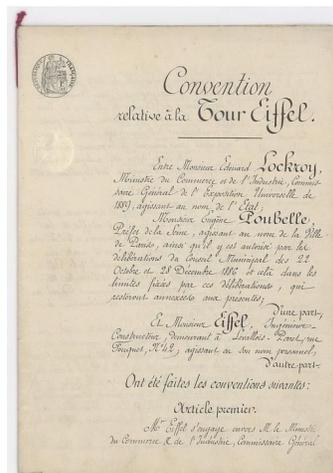 Convention
relative à la Tour Eiffel.
Entre Monsieur Edouard Lockroy,
Ministre du Commerce et de l'Industrie, Commis-
saire Général de l'Exposition Universelle de
1889, agissant au nom de l'Etat;
Monsieur Eugène Poubelle,
Préfet de la Seine, agissant au nom de la Ville
de Paris, ainsi qu'il y est autorisé par les
délibérations du Conseil Municipal des 22
Octobre et 28 Décembre 1886 et cela dans les
limites fixées par ces délibérations, qui
resteront annexées aux présentes;
D'une part,
Et Monsieur Eiffel, Ingénieur-
Constructeur, demeurant à Levallois-Perret, rue
Fouquet, N° 42; agissant en son nom personnel,
D'autre part.
Ont été faites les conventions suivantes:
Article premier.
Mr Eiffel s'engage envers M. le Ministre
du Commerce & de l'Industrie, Commissaire Général